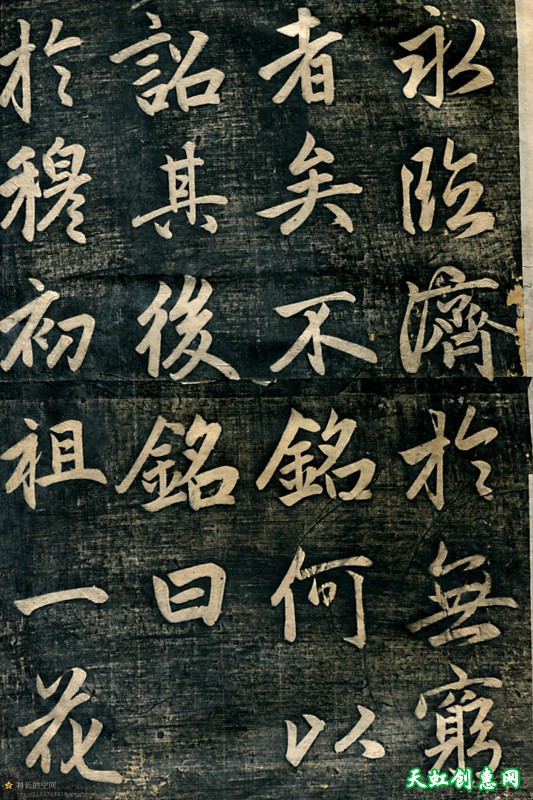 永臨濟於無窮
者矣不銘何以
詔其後銘曰
於穆初祖一花
天虹创意网